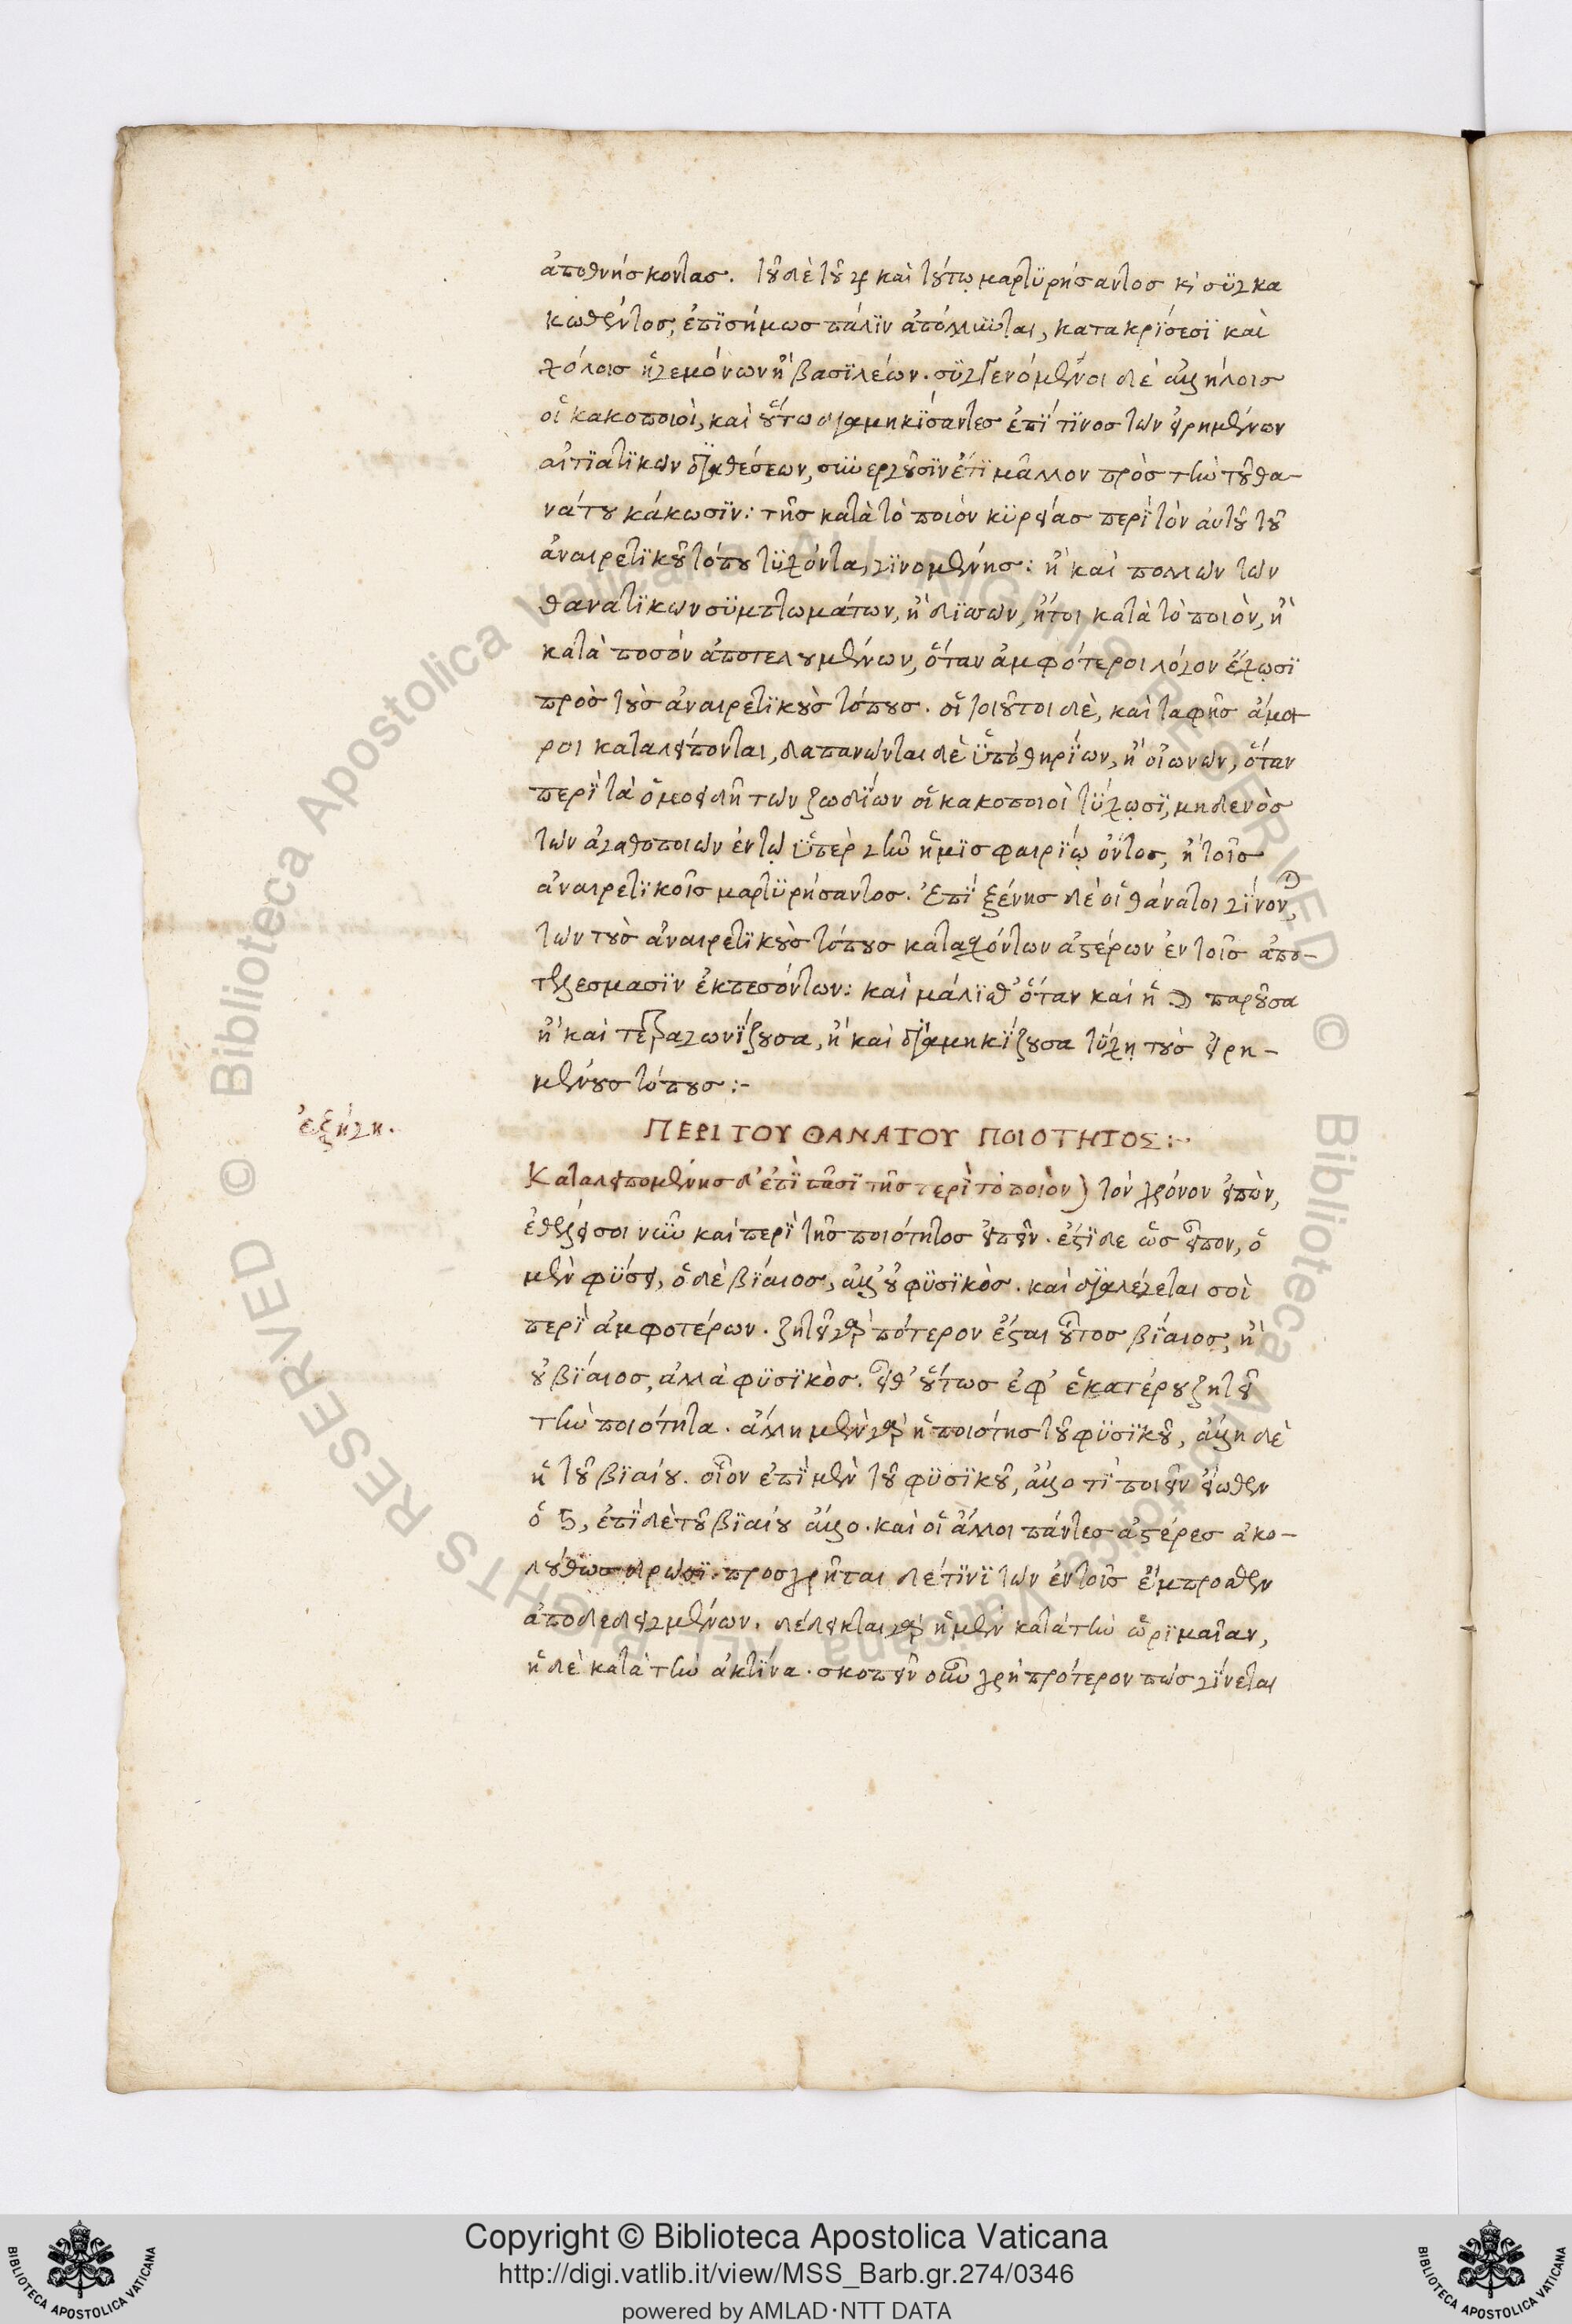 ἀποθνήσκοντας. τοῦ δὲ τοῦ ♃ καὶ τούτῳ μαρτυρήσαντος κὶ συγκα
κωθέντος, ἐπισήμως πάλιν ἀπόλλυνται, κατακρίσεσι καὶ
χόλοις ἡγεμόνων ἢ βασιλέων. συγγενόμενοι δὲ ἀλλήλοις
οἱ κακοποιοὶ, καὶ οὕτω διαμηκίσαντες ἐπί τινος τῶν εἰρημένων
αἰτιατικῶν διαθέσεων, συνεργοῦσιν ἔτι μᾶλλον πρὸς τὴν τοῦ θα-
νάτου κάκωσιν: τῆς κατὰ τὸ ποιὸν κυρείας περὶ τὸν αὐτοῦ τοῦ
ἀναιρετικοῦ τόπου τυχόντα, γινομένης: ἢ καὶ πολλῶν τῶν
θανατικῶν συμπτωμάτων, ἢ δισσῶν, ἤτοι κατὰ τὸ ποιὸν, ἢ
κατὰ ποσὸν ἀποτελουμένων, ὅταν ἀμφότεροι λόγον ἔχωσι
πρὸς τοὺς ἀναιρετικοὺς τόπους. οἱ τοιοῦτοι δὲ, καὶ ταφῆς ἄμοι
ροι καταλείπονται, δαπανῶνται δὲ ὑπὸ θηρίων, ἢ οἰωνῶν, ὅταν
περὶ τὰ ὁμοειδῆ τῶν ζωδίων οἱ κακοποιοὶ τύχωσι, μηδενὸς
τῶν ἀγαθοποιῶν ἐν τῷ ὑπὲρ γῆν ἡμισφαιρίῳ ὄντος, ἢ τοῖς
ἀναιρετικοῖς μαρτυρήσαντος. Ἐπὶ ξένης δὲ οἱ θάνατοι γίνονται,
τῶν τοὺς ἀναιρετικοὺς τόπους κατασχόντων ἀστέρων ἐν τοῖς ἀπο-
κλίμασιν ἐκπεσόντων: καὶ μάλισθ' ὅταν καὶ ἡ ☽ παροῦσα
ἢ καὶ τετραγωνίζουσα, ἢ καὶ διαμηκίζουσα τύχῃ τοὺς εἰρη-
μένους τόπους:-
ἐξήγη.
ΠΕΡΙ ΤΟΥ ΘΑΝΑΤΟΥ ΠΟΙΟΤΗΤΟΣ:·
Καταλειπομένης δ' ἐπὶ πᾶσι τῆς περὶ τὸ ποιὸν) τὸν χρόνον εἰπὼν,
ἐθέλει σοι νῦν καὶ περὶ τῆς ποιότητος εἰπεῖν. ἔστι δε ὡς εἶπον, ὁ
μὲν φύσει, ὁ δὲ βίαιος, ἀλλ' οὐ φυσικὸς. καὶ διαλέγεται σοὶ
περὶ ἀμφοτέρων. ζητεῖ γὰρ πότερον ἔσται οὗτος βίαιος, ἢ
οὐ βίαιος, ἀλλὰ φυσικὸς. εἶθ' οὕτως ἐφ' ἑκατέρου ζητεῖ
τὴν ποιότητα. ἄλλη μὲν γὰρ ἡ ποιότης τοῦ φυσικοῦ, ἄλλη δὲ
ἡ τοῦ βιαίου. οἷον ἐπὶ μὲν τοῦ φυσικοῦ, ἄλλο τὶ ποιεῖν εἴωθεν
ὁ ♄, ἐπὶ δὲ τοῦ βιαίου ἄλλο. καὶ οἱ ἄλλοι πάντες ἀστέρες ἀκο-
λούθως δρῶσι. προσχρῆται δέ τινι τῶν ἐν τοῖς ἔμπροσθεν
ἀποδεδειγμένων. δέδεικται γὰρ ἡ μὲν κατὰ τὴν ὡριμαίαν,
ἡ δὲ κατὰ τὴν ἀκτῖνα. σκοπεῖν οὖν χρὴ πρότερον πῶς γίνεται
Copyright © Biblioteca Apostolica Vaticana
http://digi.vatlib.it/view/MSS_Barb.gr.274/0346
powered by AMLAD·NTT DATA